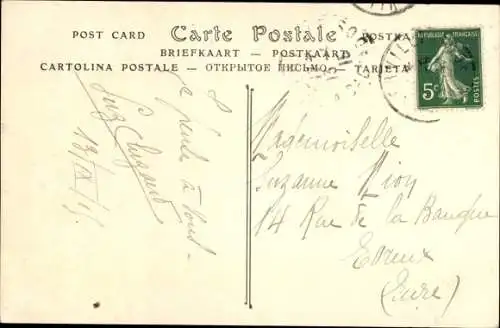 POST CARD Carte Postale POSTKA
BRIEFKAART — POSTKAART
CARTOLINA POSTALE — ОТКРЫТОЕ ПИСЬМО — TARJETA
RÉPUBLIQUE FRANÇAISE
5c
Je pense à vous
13/IX/15
Mademoiselle
Suzanne Mion
14 Rue de la Banque
Evreux
(Eure)